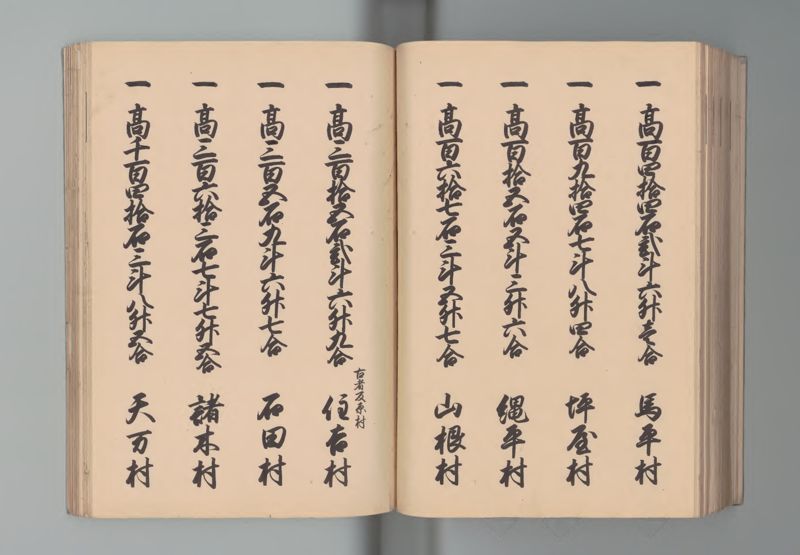 一 高百四拾四石弐斗六升壱合 馬平村
一 高百九拾四石七斗八升四合 坪屋村
一 高百拾五石五斗三升六合 縄平村
一 高百六拾七石三斗五升七合 山根村
古者反原村
一 高三百拾五石弐斗六升九合 住吉村
一 高三百五石九斗六升七合 石田村
一 高三百六拾三石七斗七升五合 諸木村
一 高千百四拾石三斗八升五合 天万村